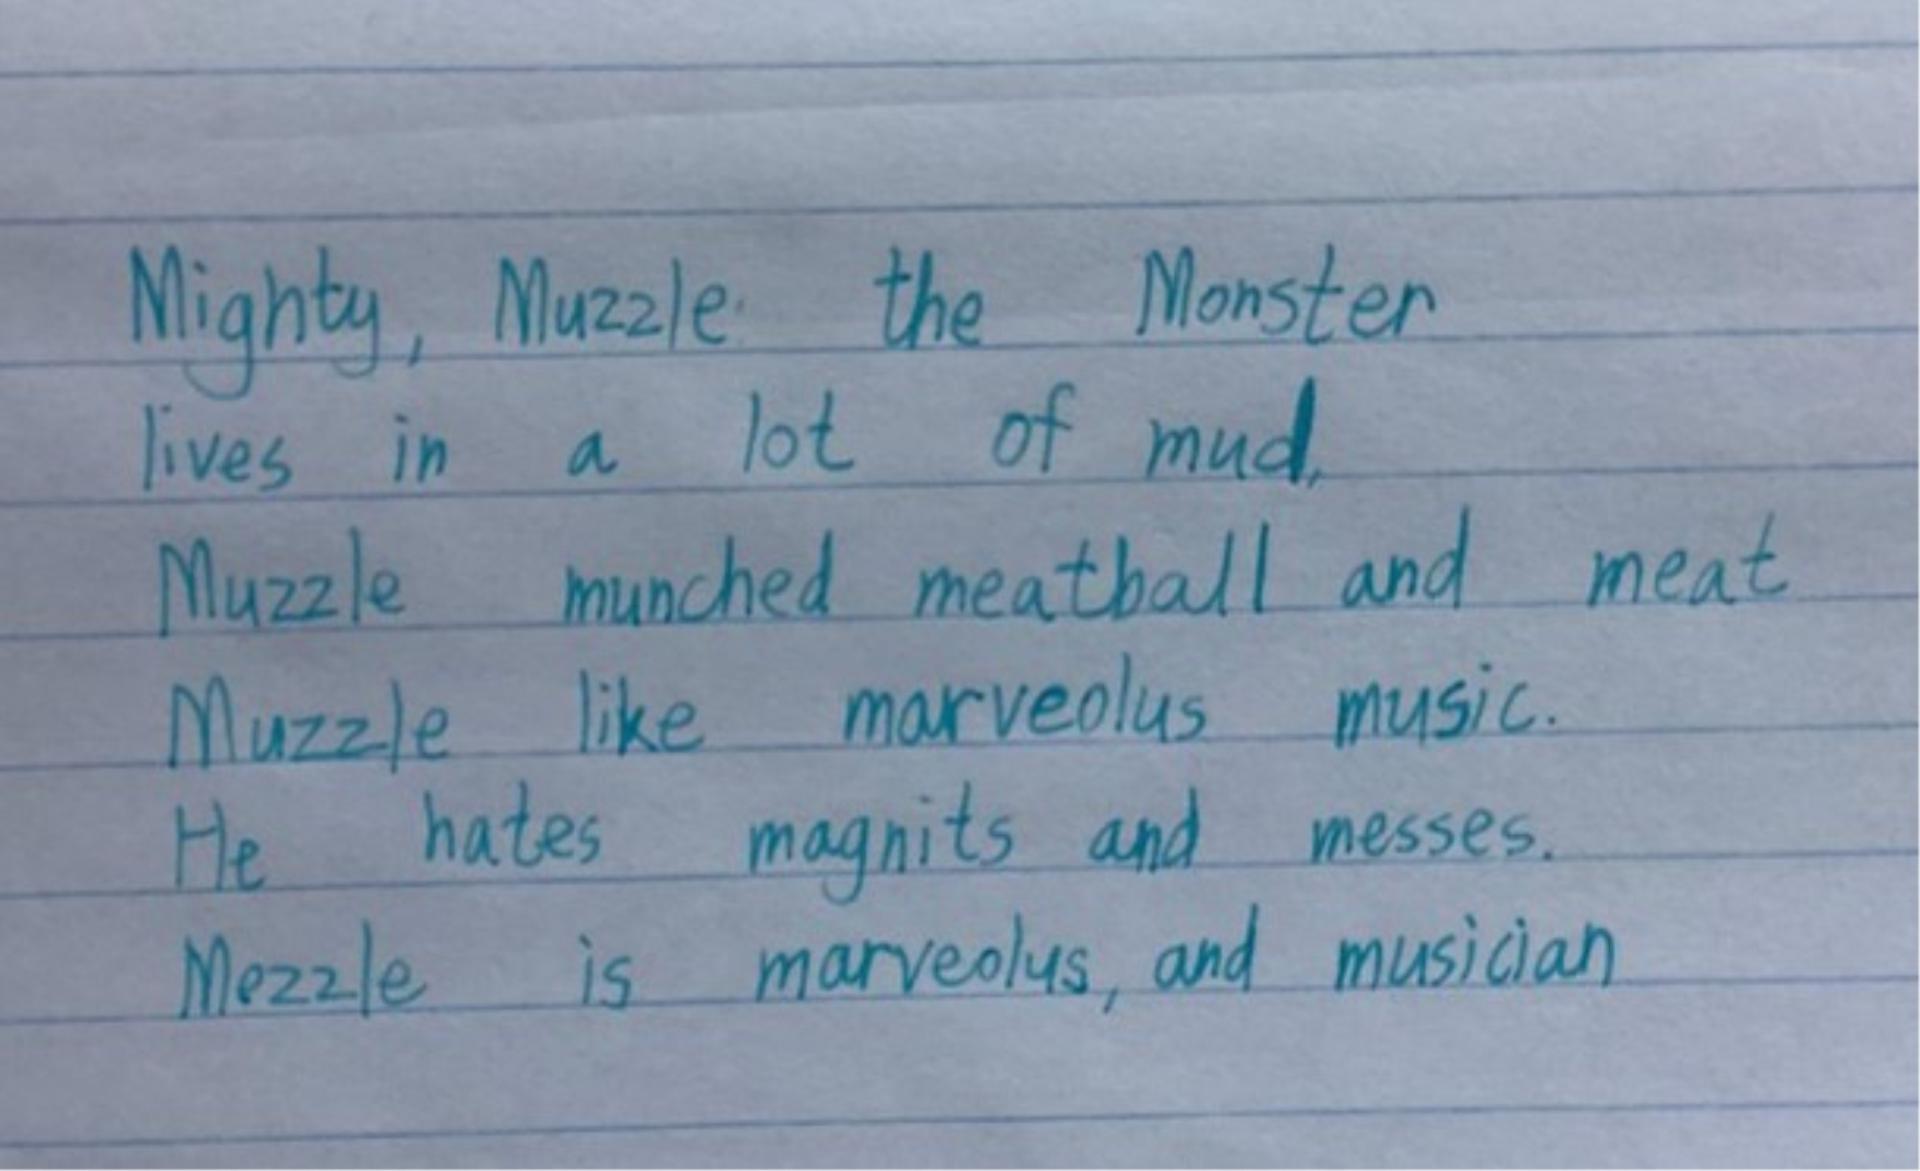 Mighty, Muzzle the Monster
lives in a lot of mud,
Muzzle munched meatball and meat
Muzzle like marveolus music.
He hates magnits and messes.
Mezzle is marveolus, and musician